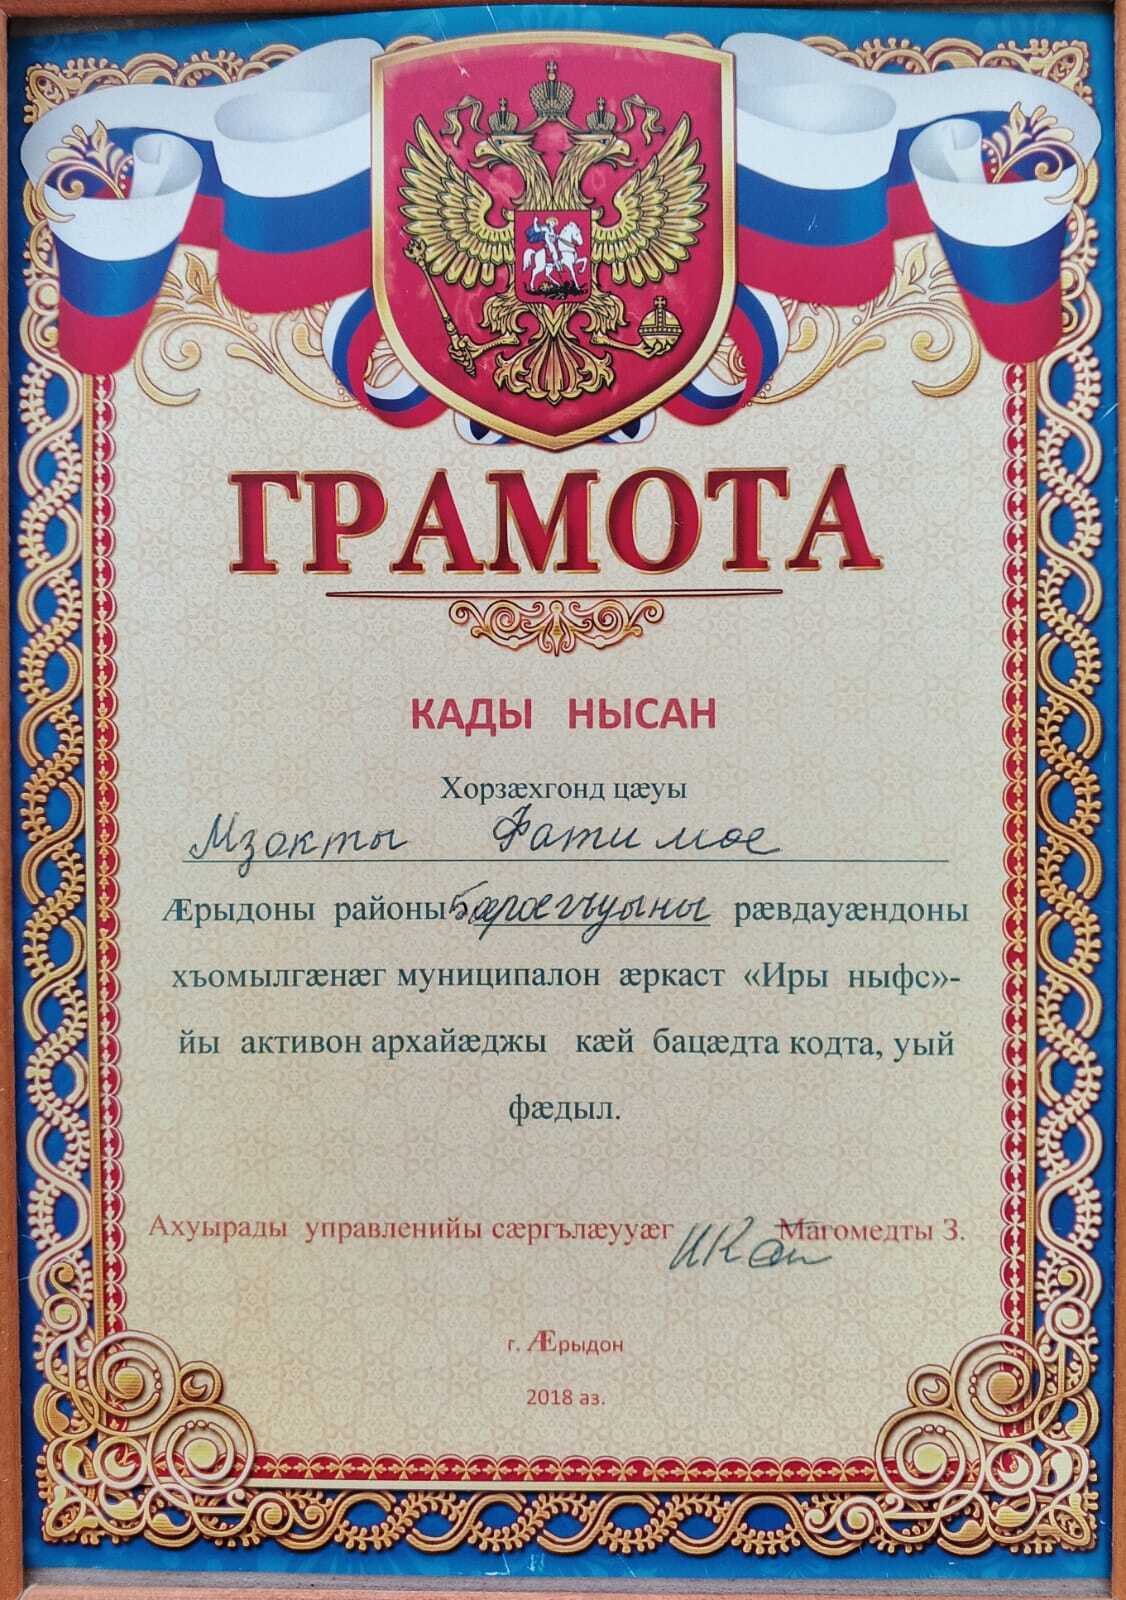 ГРАМОТА
КАДЫ НЫСАН
Хорзӕхгонд цӕуы
Мзокты Фатимӕ
Ӕрыдоны районы Бӕрӕгъуыны рӕвдауӕндоны
хъомылгӕнӕг муниципалон ӕркаст «Иры ныфс»-
йы активон архайӕджы кӕй бацӕдта кодта, уый
фӕдыл.
Ахуырады управленийы сӕргълӕууӕг Магомедты З.
г. Ӕрыдон
2018 аз.